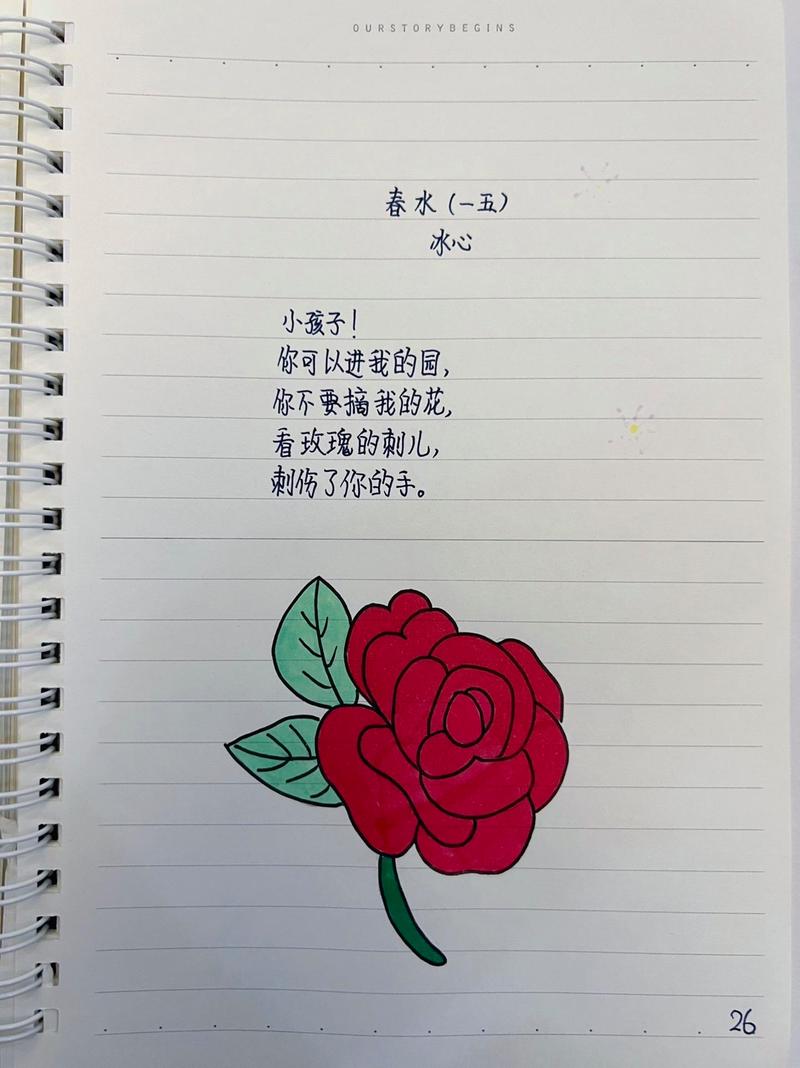 OURSTORYBEGINS
春水（一五）
冰心
小孩子！
你可以进我的园，
你不要摘我的花，
看玫瑰的刺儿，
刺伤了你的手。
26